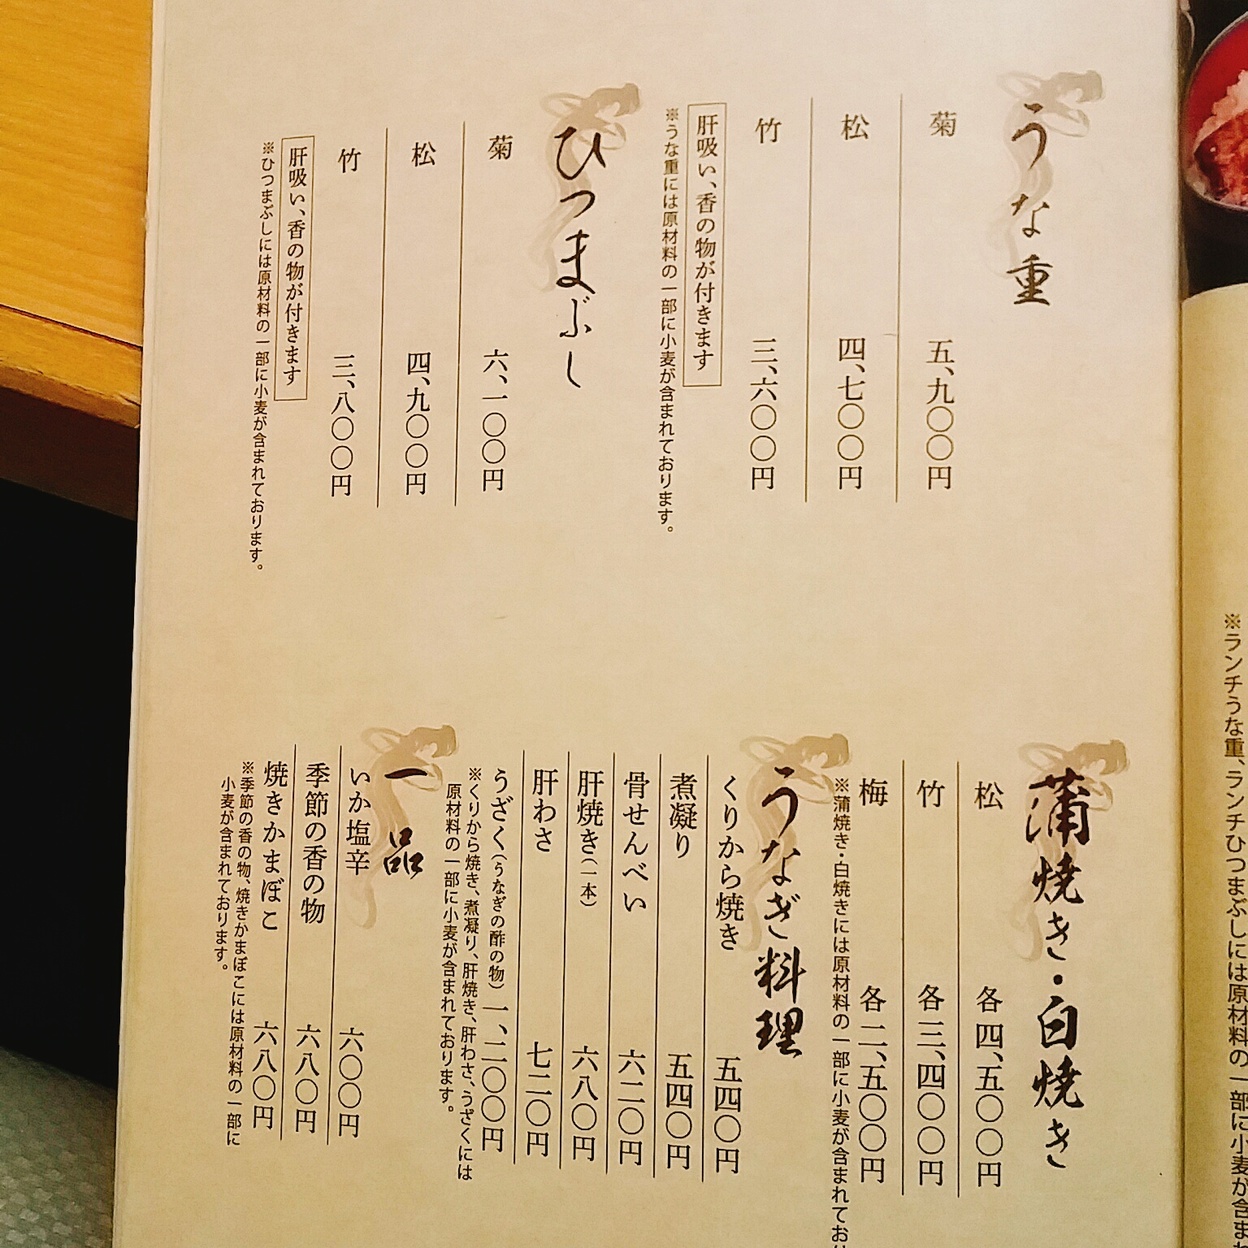 うな重
菊 五、九〇〇円
松 四、七〇〇円
竹 三、六〇〇円
肝吸い、香の物が付きます
※うな重には原材料の一部に小麦が含まれております。
ひつまぶし
菊 六、一〇〇円
松 四、九〇〇円
竹 三、八〇〇円
肝吸い、香の物が付きます
※ひつまぶしには原材料の一部に小麦が含まれております。
蒲焼き・白焼き
松 各四、五〇〇円
竹 各三、四〇〇円
梅 各二、五〇〇円
※蒲焼き・白焼きには原材料の一部に小麦が含まれてお
うなぎ料理
くりから焼き 五四〇円
煮凝り 五四〇円
骨せんべい 六二〇円
肝焼き(一本) 六八〇円
肝わさ 七二〇円
うざく(うなぎの酢の物) 一、二〇〇円
※くりから焼き、煮凝り、肝焼き、肝わさ、うざくには
原材料の一部に小麦が含まれております。
一品
いか塩辛 六〇〇円
季節の香の物 六八〇円
焼きかまぼこ 六八〇円
※季節の香の物、焼きかまぼこには原材料の一部に
小麦が含まれております。
※ランチうな重、ランチひつまぶしには原材料の一部に小麦が含ま